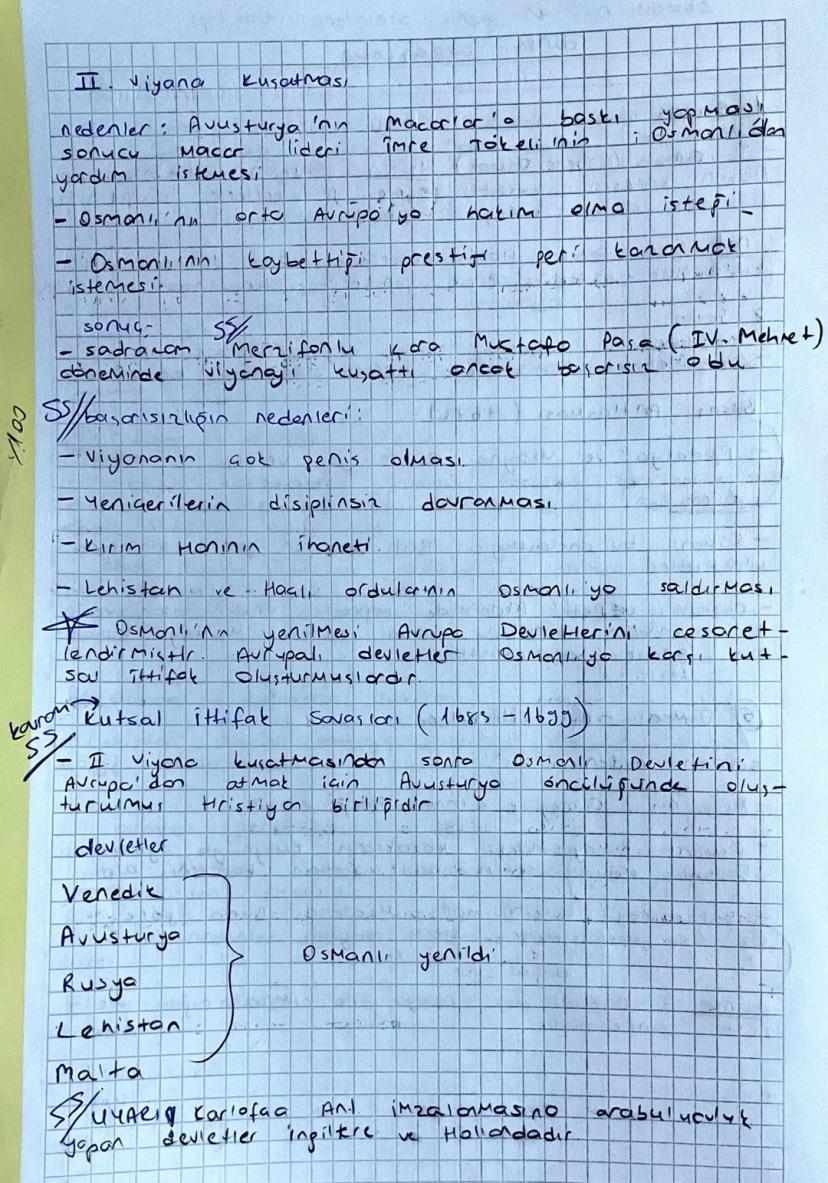 II. Viyana Kuşatması
nedenler: Avusturya'nın Macarlar'a baskı yapması
sonucu Macar lideri İmre Tökeli'nin Osmanlı'dan
yardım istemesi
- Osmanlı'nın orta Avrupa'ya hakim olma isteği
- Osmanlı'nın kaybettiği prestiji geri kazanmak
istemesi.
sonuç-
SS//
- sadrazam Merzifonlu Kara Mustafa Paşa (IV. Mehmet)
döneminde Viyana'yı kuşattı ancak başarısız oldu
SS// başarısızlığın nedenleri:
- Viyananın çok geniş olması.
- Yeniçerilerin disiplinsiz davranması.
- Kırım Hanının ihaneti.
- Lehistan ve Haçlı ordularının Osmanlı'ya saldırması
Osmanlı'nın yenilmesi Avrupa Devletlerini cesaret-
lendirmiştir. Avrupalı devletler Osmanlıya karşı kut-
sal ittifak oluşturmuşlardır.
Kutsal ittifak Savaşları (1683 - 1699)
SS//
- II Viyana kuşatmasından sonra Osmanlı Devletini
Avrupa'dan atmak için Avusturya öncülüğünde oluş-
turulmuş Hristiyan birliğidir
devletler
Venedik
Avusturya
Rusya
Lehistan
Malta
Osmanlı yenildi
SS// Karlofça Ant imzalanmasına arabuluculuk
yapan devletler ingiltere ve Hollandadır.